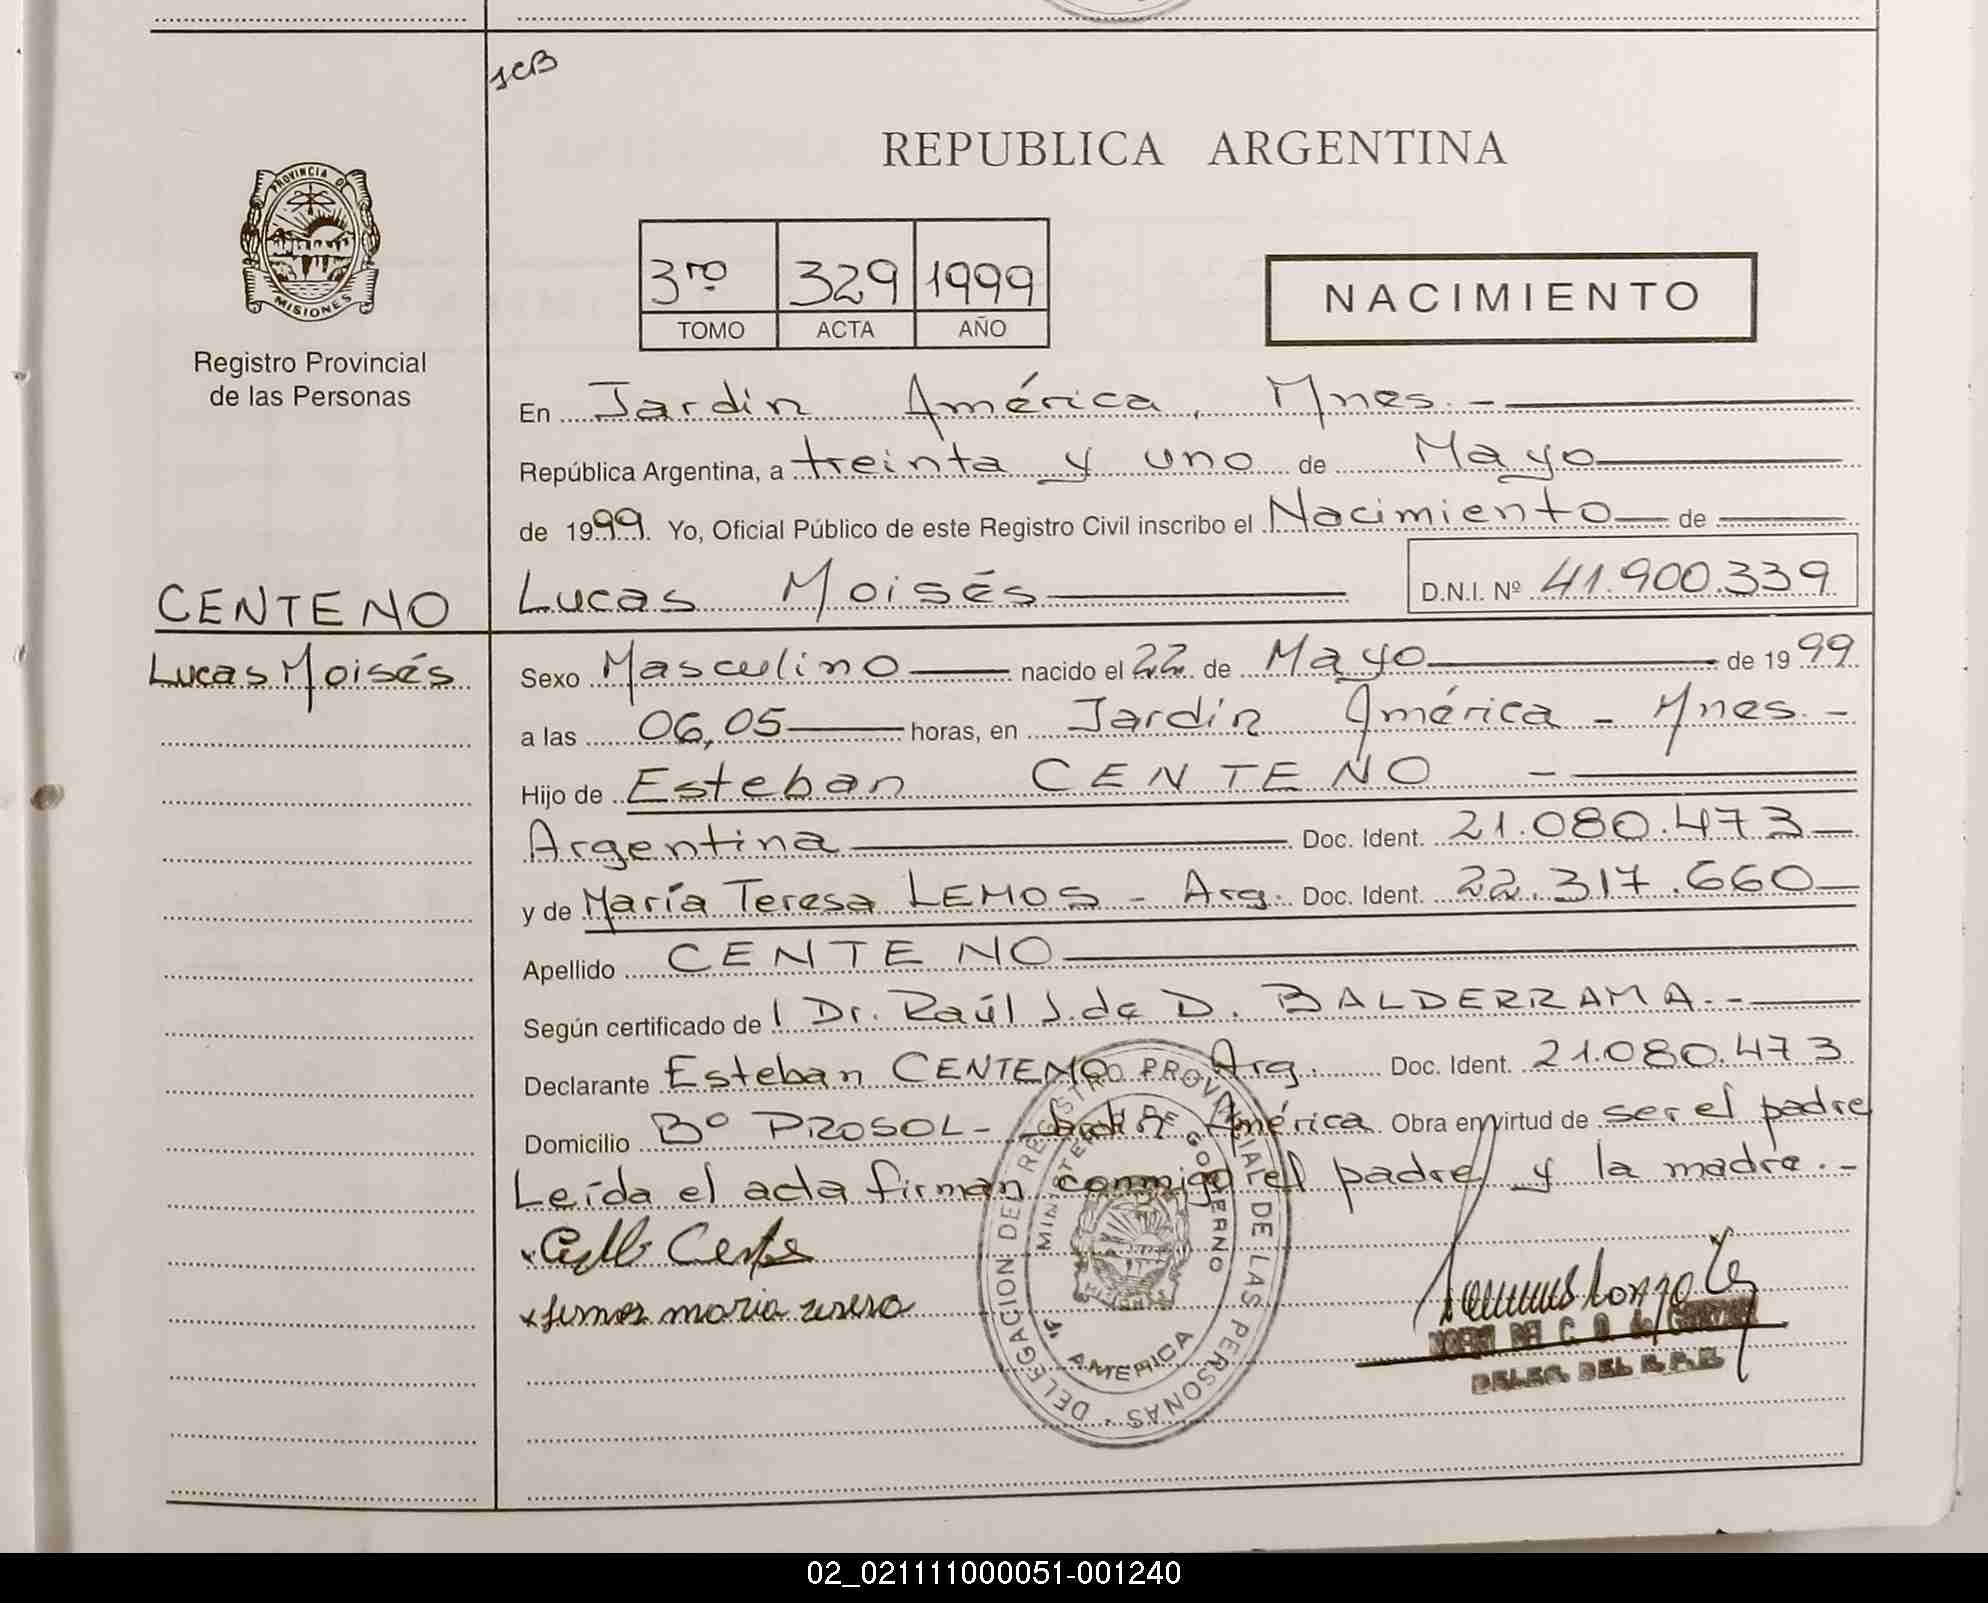 JCB
REPUBLICA ARGENTINA
PROVINCIA DE
MISIONES
Registro Provincial
de las Personas
3ro 329 1999
TOMO ACTA AÑO
NACIMIENTO
En Jardín América, Mnes.-
República Argentina, a treinta y uno de Mayo
de 1999. Yo, Oficial Público de este Registro Civil inscribo el Nacimiento de
CENTENO
Lucas Moisés
Lucas Moisés D.N.I. Nº 41.900.339
Sexo Masculino nacido el 22 de Mayo de 1999
a las 06,05 horas, en Jardín América - Mnes.-
Hijo de Esteban CENTENO -
Argentina Doc. Ident. 21.080.473
y de María Teresa LEMOS - Arg. Doc. Ident. 22.317.660
Apellido CENTENO
Según certificado de l Dr. Raúl J. de D. BALDERRAMA.-
Declarante Esteban CENTENO Arg. Doc. Ident. 21.080.473
Domicilio Bº PROSOL- América Obra en virtud de ser el padre
Leída el acta firman conmigo el padre y la madre.-
lemos maria teresa
DELEGACION DEL REGISTRO PROVINCIAL DE LAS PERSONAS
MINISTERIO DE GOBIERNO
AMERICA
MISIONES
DELEG. DEL R.P.P.
02_021111000051-001240